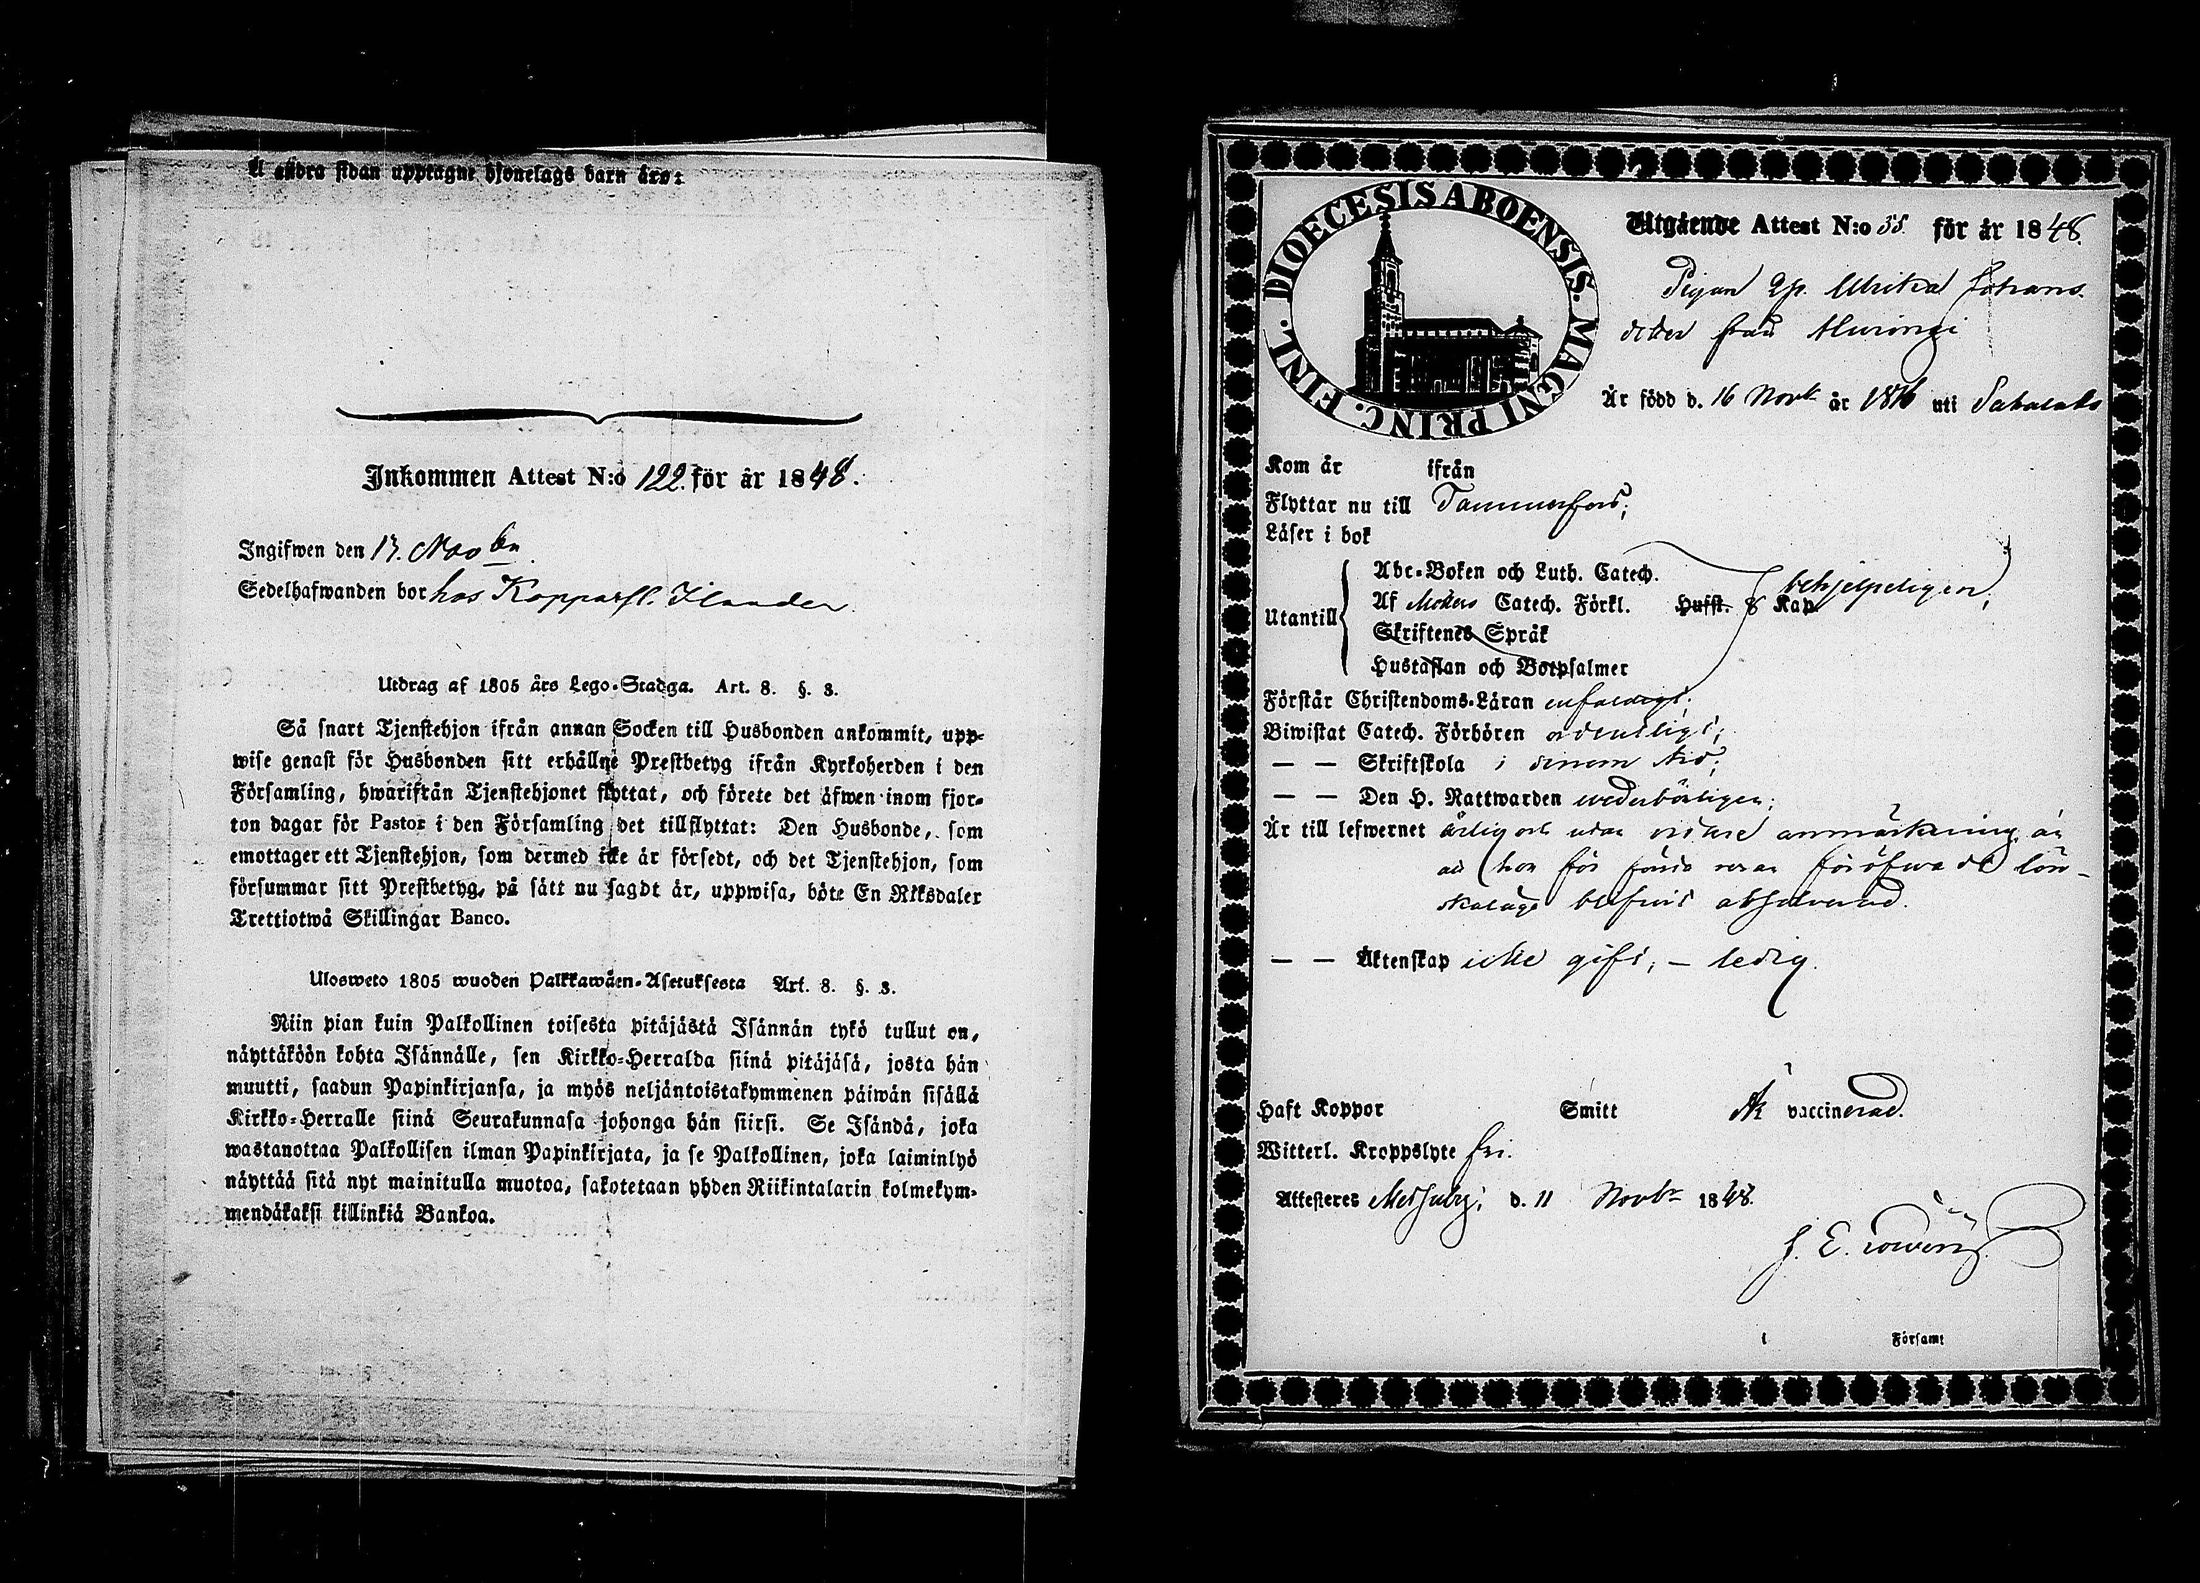 å andra sidan upptagne hjonelags barn äro:
Inkommen Attest N:o 122 för år 1848.
Ingifwen den 13. Novbr.
Sedelhafwanden bor hos Kopparsl. Ilander.
Utdrag af 1805 års Lego-Stadga. Art. 8. §. 3.
Så snart Tjenstehjon ifrån annan Socken till Husbonden ankommit, upp-
wise genast för Husbonden sitt erhållne Prestbetyg ifrån Kyrkoherden i den
Församling, hwarifrån Tjenstehjonet flyttat, och förete det äfwen inom fjor-
ton dagar för Pastor i den Församling det tillflyttat: Den Husbonde, som
emottager ett Tjenstehjon, som dermed icke är försedt, och det Tjenstehjon, som
försummar sitt Prestbetyg, på sätt nu sagdt är, uppwisa, böte En Riksdaler
Trettiotwå Skillingar Banco.
Ulosweto 1805 wuoden Palkkawäen-Asetuksesta Art. 8. §. 3.
Niin pian kuin Palkollinen toisesta pitäjästä Isännän tykö tullut on,
näyttäköön kohta Isännälle, sen Kirkko-Herralda siinä pitäjäsä, josta hän
muutti, saadun Papinkirjansa, ja myös neljäntoistakymmenen päiwän sisällä
Kirkko-Herralle siinä Seurakunnasa johonga hän siirsi. Se Isändä, joka
wastanottaa Palkollisen ilman Papinkirjata, ja se Palkollinen, joka laiminlyö
näyttää sitä nyt mainitulla muotoa, sakotetaan yhden Riikintalarin kolmekym-
mendäkaksi killinkiä Bankoa.
DIOECESIS ABOENSIS. MAGNI PRINC. FINL.
Utgående Attest N:o 35. för år 1848.
Pigan Ulrika Johans-
dotter från
Är född d. 16 Novbr år 1816 uti Sahalaks
Kom år ifrån
Flyttar nu till Tammerfors;
Läser i bok
Utantill
Abc-Boken och Luth. Catech.
Af Möllers Catech. Förkl. Hufst. 8 Kap. behjelpeligen;
Skriftenes Språk
Hustaflan och Botpsalmer
Förstår Christendoms-Läran enfaldigt;
Biwistat Catech. Förhören ordentligt;
— — Skriftskola i sinom tid;
— — Den H. Nattwarden wederbörligen;
Är till lefwernet ärlig och utan widare anmärkning än
att hon för första resan föröfwadt lön-
skaläge blifvit absolverad.
— — Äktenskap icke gift; – ledig.
Haft Koppor Smitt Är vaccinerad.
Witterl. Kroppslyte fri.
Attesteres d. 11 Novbr 1848.
J. E.
i Församl